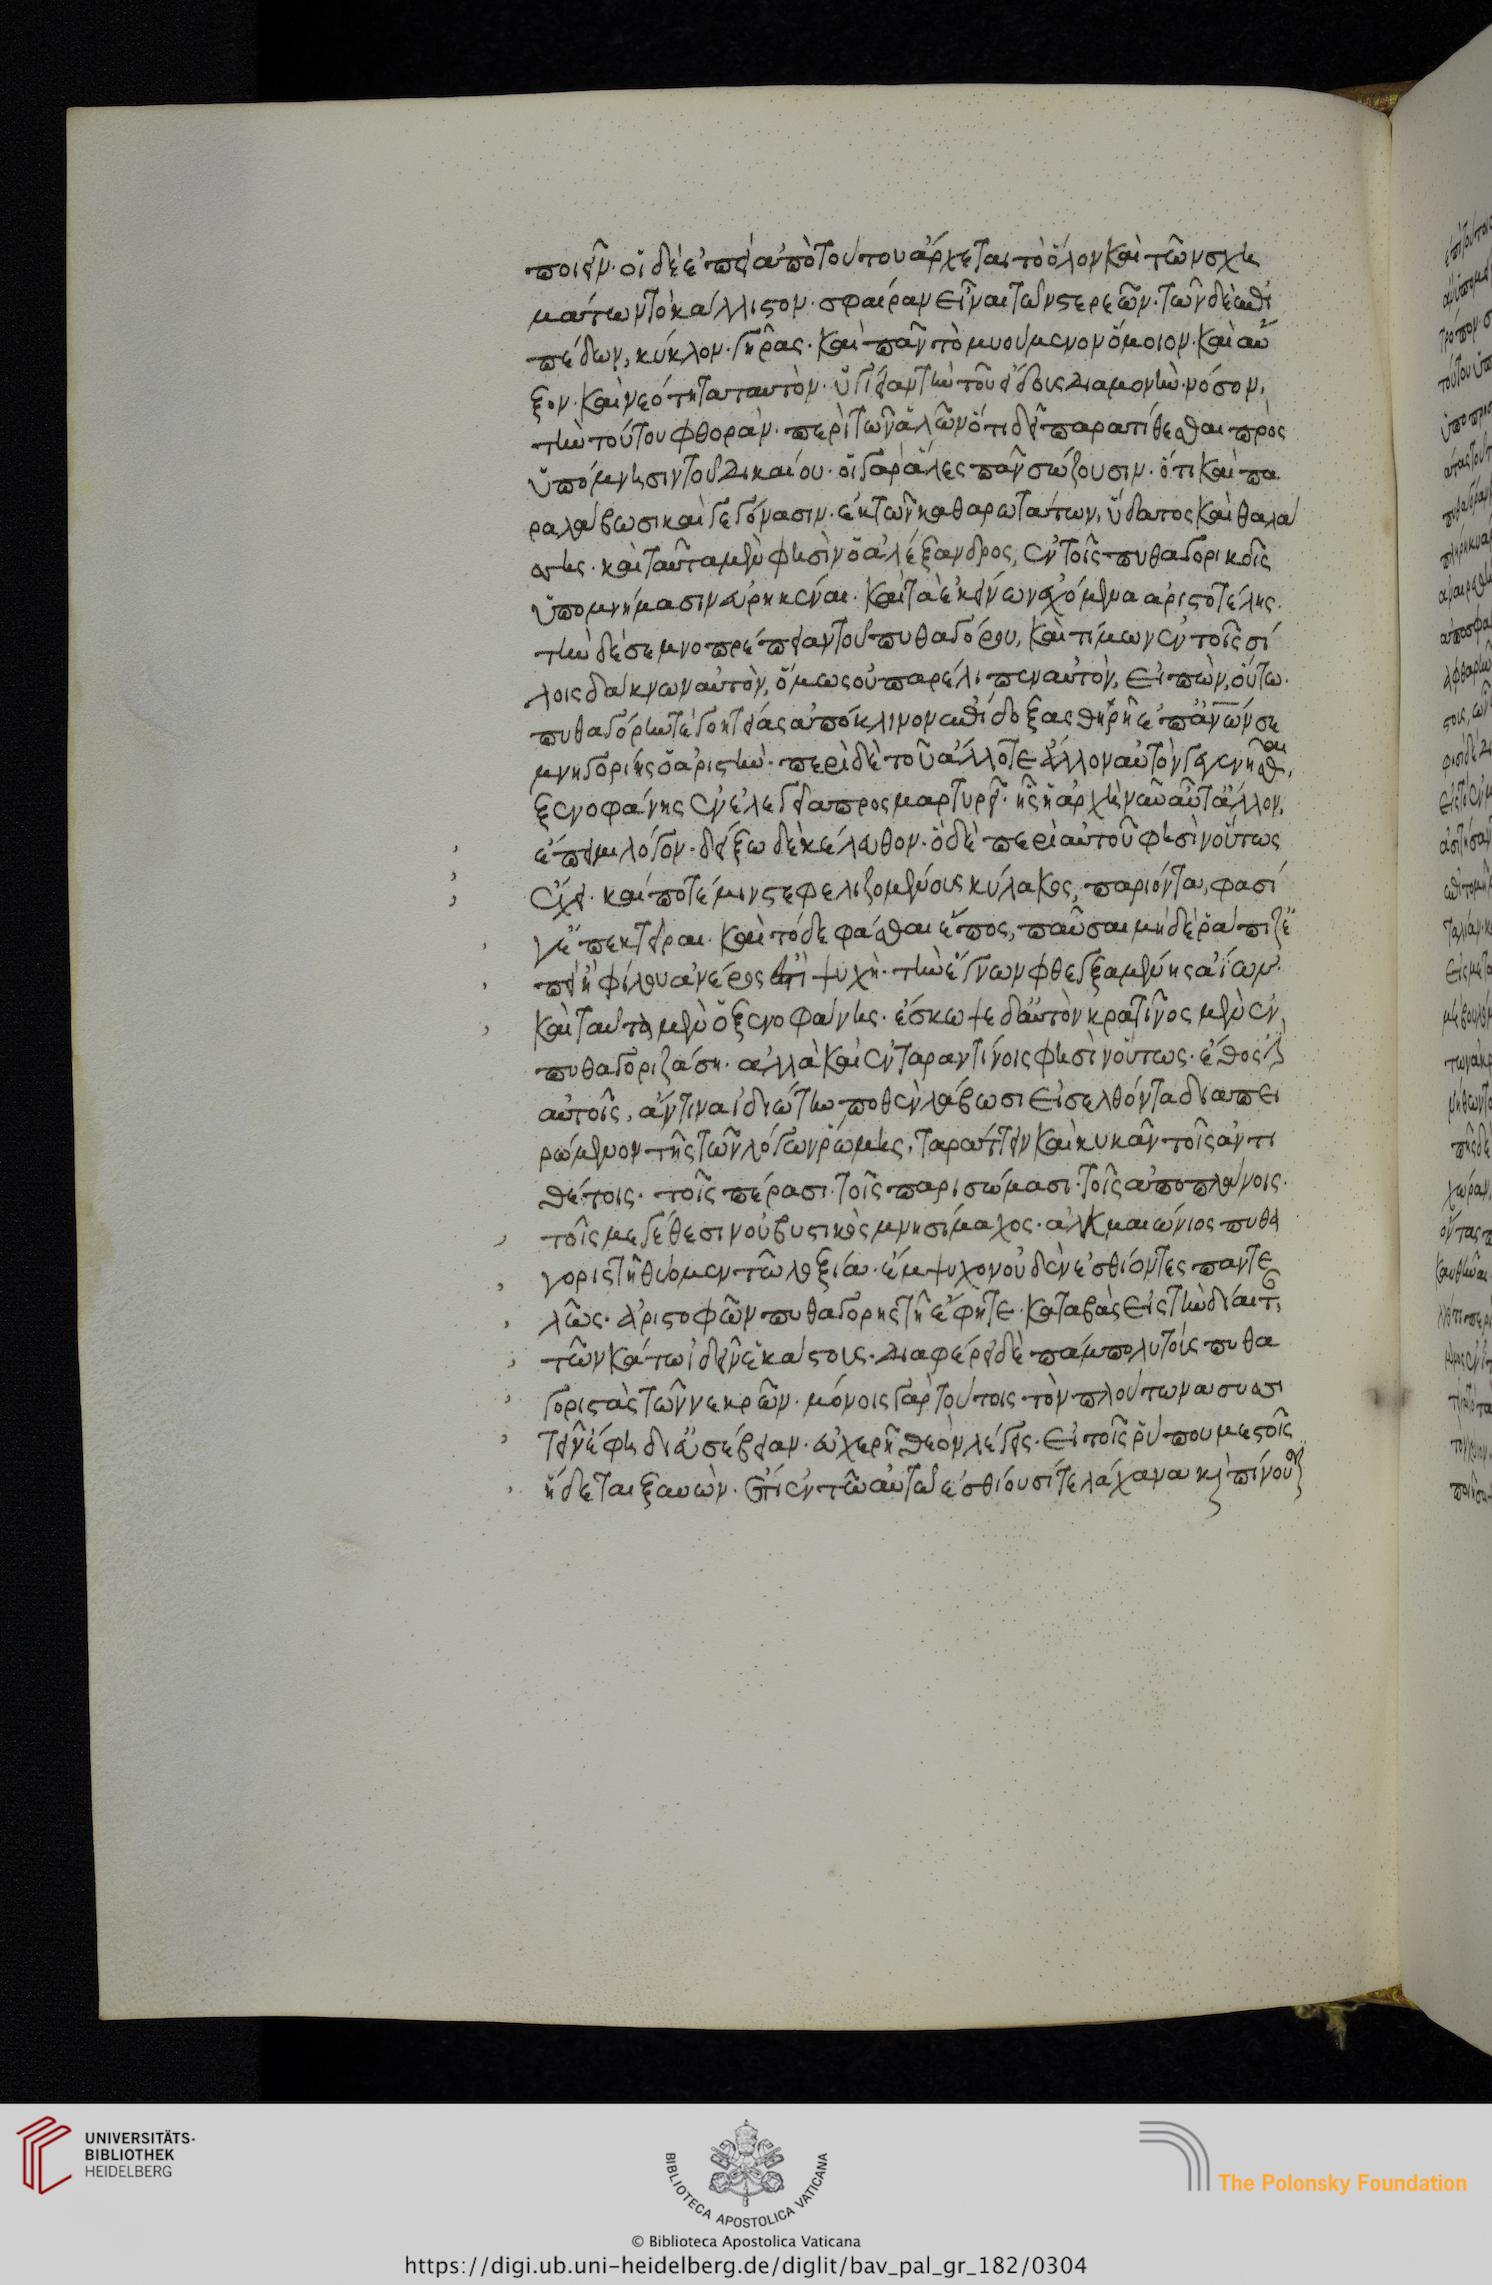 ποιεῖν. οἱ δὲ ἐπεὶ ἀπὸ τούτου ἄρχεται τὸ ὅλον καὶ τῶν σχη
μάτων τὸ κάλλιστον. σφαίραν εἶναι τῶν στερεῶν. τῶν δὲ ἐπι
πέδων, κύκλον. γῆρας. καὶ πᾶν τὸ μυούμενον ὅμοιον. καὶ αὔ
ξον. καὶ νεότητα ταυτὸν. ὑγίειαν τὴν τοῦ εἴδους διαμονὴν. νόσον,
τὴν τούτου φθορὰν. περὶ τῶν ἁλῶν ὅτι δεῖ παρατίθεσθαι πρὸς
ὑπόμνησιν τοῦ δικαίου. οἱ γὰρ ἅλες πᾶν σώζουσιν. ὅτι καὶ πα
ραλάβωσι καὶ γεγόνασιν. ἐκ τῶν καθαρωτάτων, ὕδατος καὶ θαλά
σσης. καὶ ταῦτα μὲν φησὶν ὁ ἀλέξανδρος, ἐν τοῖς πυθαγορικοῖς
ὑπομνήμασιν εὑρηκέναι. καὶ τὰ ἐκείνων ἐχόμενα ἀριστοτέλης.
τὴν δὲ σεμνοπρέπειαν τοῦ πυθαγόρου, καὶ τίμων ἐν τοῖς σί
λοις δάκνων αὐτὸν, ὅμως οὐ παρέλιπεν αὐτὸν, εἰπὼν, οὕτω.
πυθαγόρην τὲ γοητείας ἀπόκλινον ἐπὶ δόξας θήρῃ ἐπ' ἀνων σε
μνηγορίης ὀαριστὴν. περὶ δὲ τοῦ ἄλλοτε ἄλλον αὐτὸν γεγενῆσθαι,
ξενοφάνης ἐν ἐλεγεία προσμαρτυρεῖ. ἧς ἡ ἀρχὴ νῦν αὖτ' ἄλλον,
ἔπειμι λόγον. δείξω δὲ κέλευθον. ὃ δὲ περὶ αὐτοῦ φησὶν οὕτως
ἔχει. καί ποτέ μιν στεφελιζομένους κύλακος, παριόντα, φασί
ν' ἔπεκτεῖραι. καὶ τόδε φάσθαι ἔπος, παῦσαι μηδὲ ῥάπιζ' ἔ
πειὴ φίλου ἀνέρος ἐστὶ ψυχὴ. τὴν ἔγνων φθεγξαμένης ἀΐων.
καὶ ταῦτα μὲν ὁ ξενοφάνης. ἔσκωψε δ' αὐτὸν κρατῖνος μὲν ἐν
πυθαγοριζάση. ἀλλὰ καὶ ἐν ταραντίνοις φησὶν οὕτως. ἔθος ἐστὶν
αὐτοῖς, ἄν τινα ἰδιώτην ποθὲν λάβωσι εἰσελθόντα διαπει
ρώμενον τῆς τῶν λόγων ῥώμης, ταράττειν καὶ κυκᾶν τοῖς ἀντι
θέτοις. τοῖς πέρασι. τοῖς παρισώμασι. τοῖς ἀποπλάνοις.
τοῖς μεγέθεσι νουβυστικῶς μνησίμαχος. ἀλκμαιώνιος πυθα
γοριστὶ θύομεν τῶ λοξία. ἔμψυχον οὐδὲν ἐσθίοντες παντε
λῶς. ἀριστοφῶν πυθαγορηστῆ ἔφητε. καταβὰς εἰς τὴν δίαιταν
τῶν κάτω ἰδεῖν ἑκάστους. διαφέρει δὲ πάμπολυ τοὺς πυθα
γοριστὰς τῶν νεκρῶν. μόνοις γὰρ τούτοις τὸν πλούτωνα συσσι
τεῖν ἔφη δι' εὐσέβειαν. εὐχερῆ θεὸν λέγεις. εἰ τοῖς ῥύπου μεστοῖς
ἥδεται ξυνὼν. ἔτι ἐν τῶ αὐτῶ ἐσθίουσί τε λάχανα καὶ πίνουσιν
UNIVERSITÄTS-
BIBLIOTHEK
HEIDELBERG
BIBLIOTECA APOSTOLICA VATICANA
The Polonsky Foundation
© Biblioteca Apostolica Vaticana
https://digi.ub.uni-heidelberg.de/diglit/bav_pal_gr_182/0304